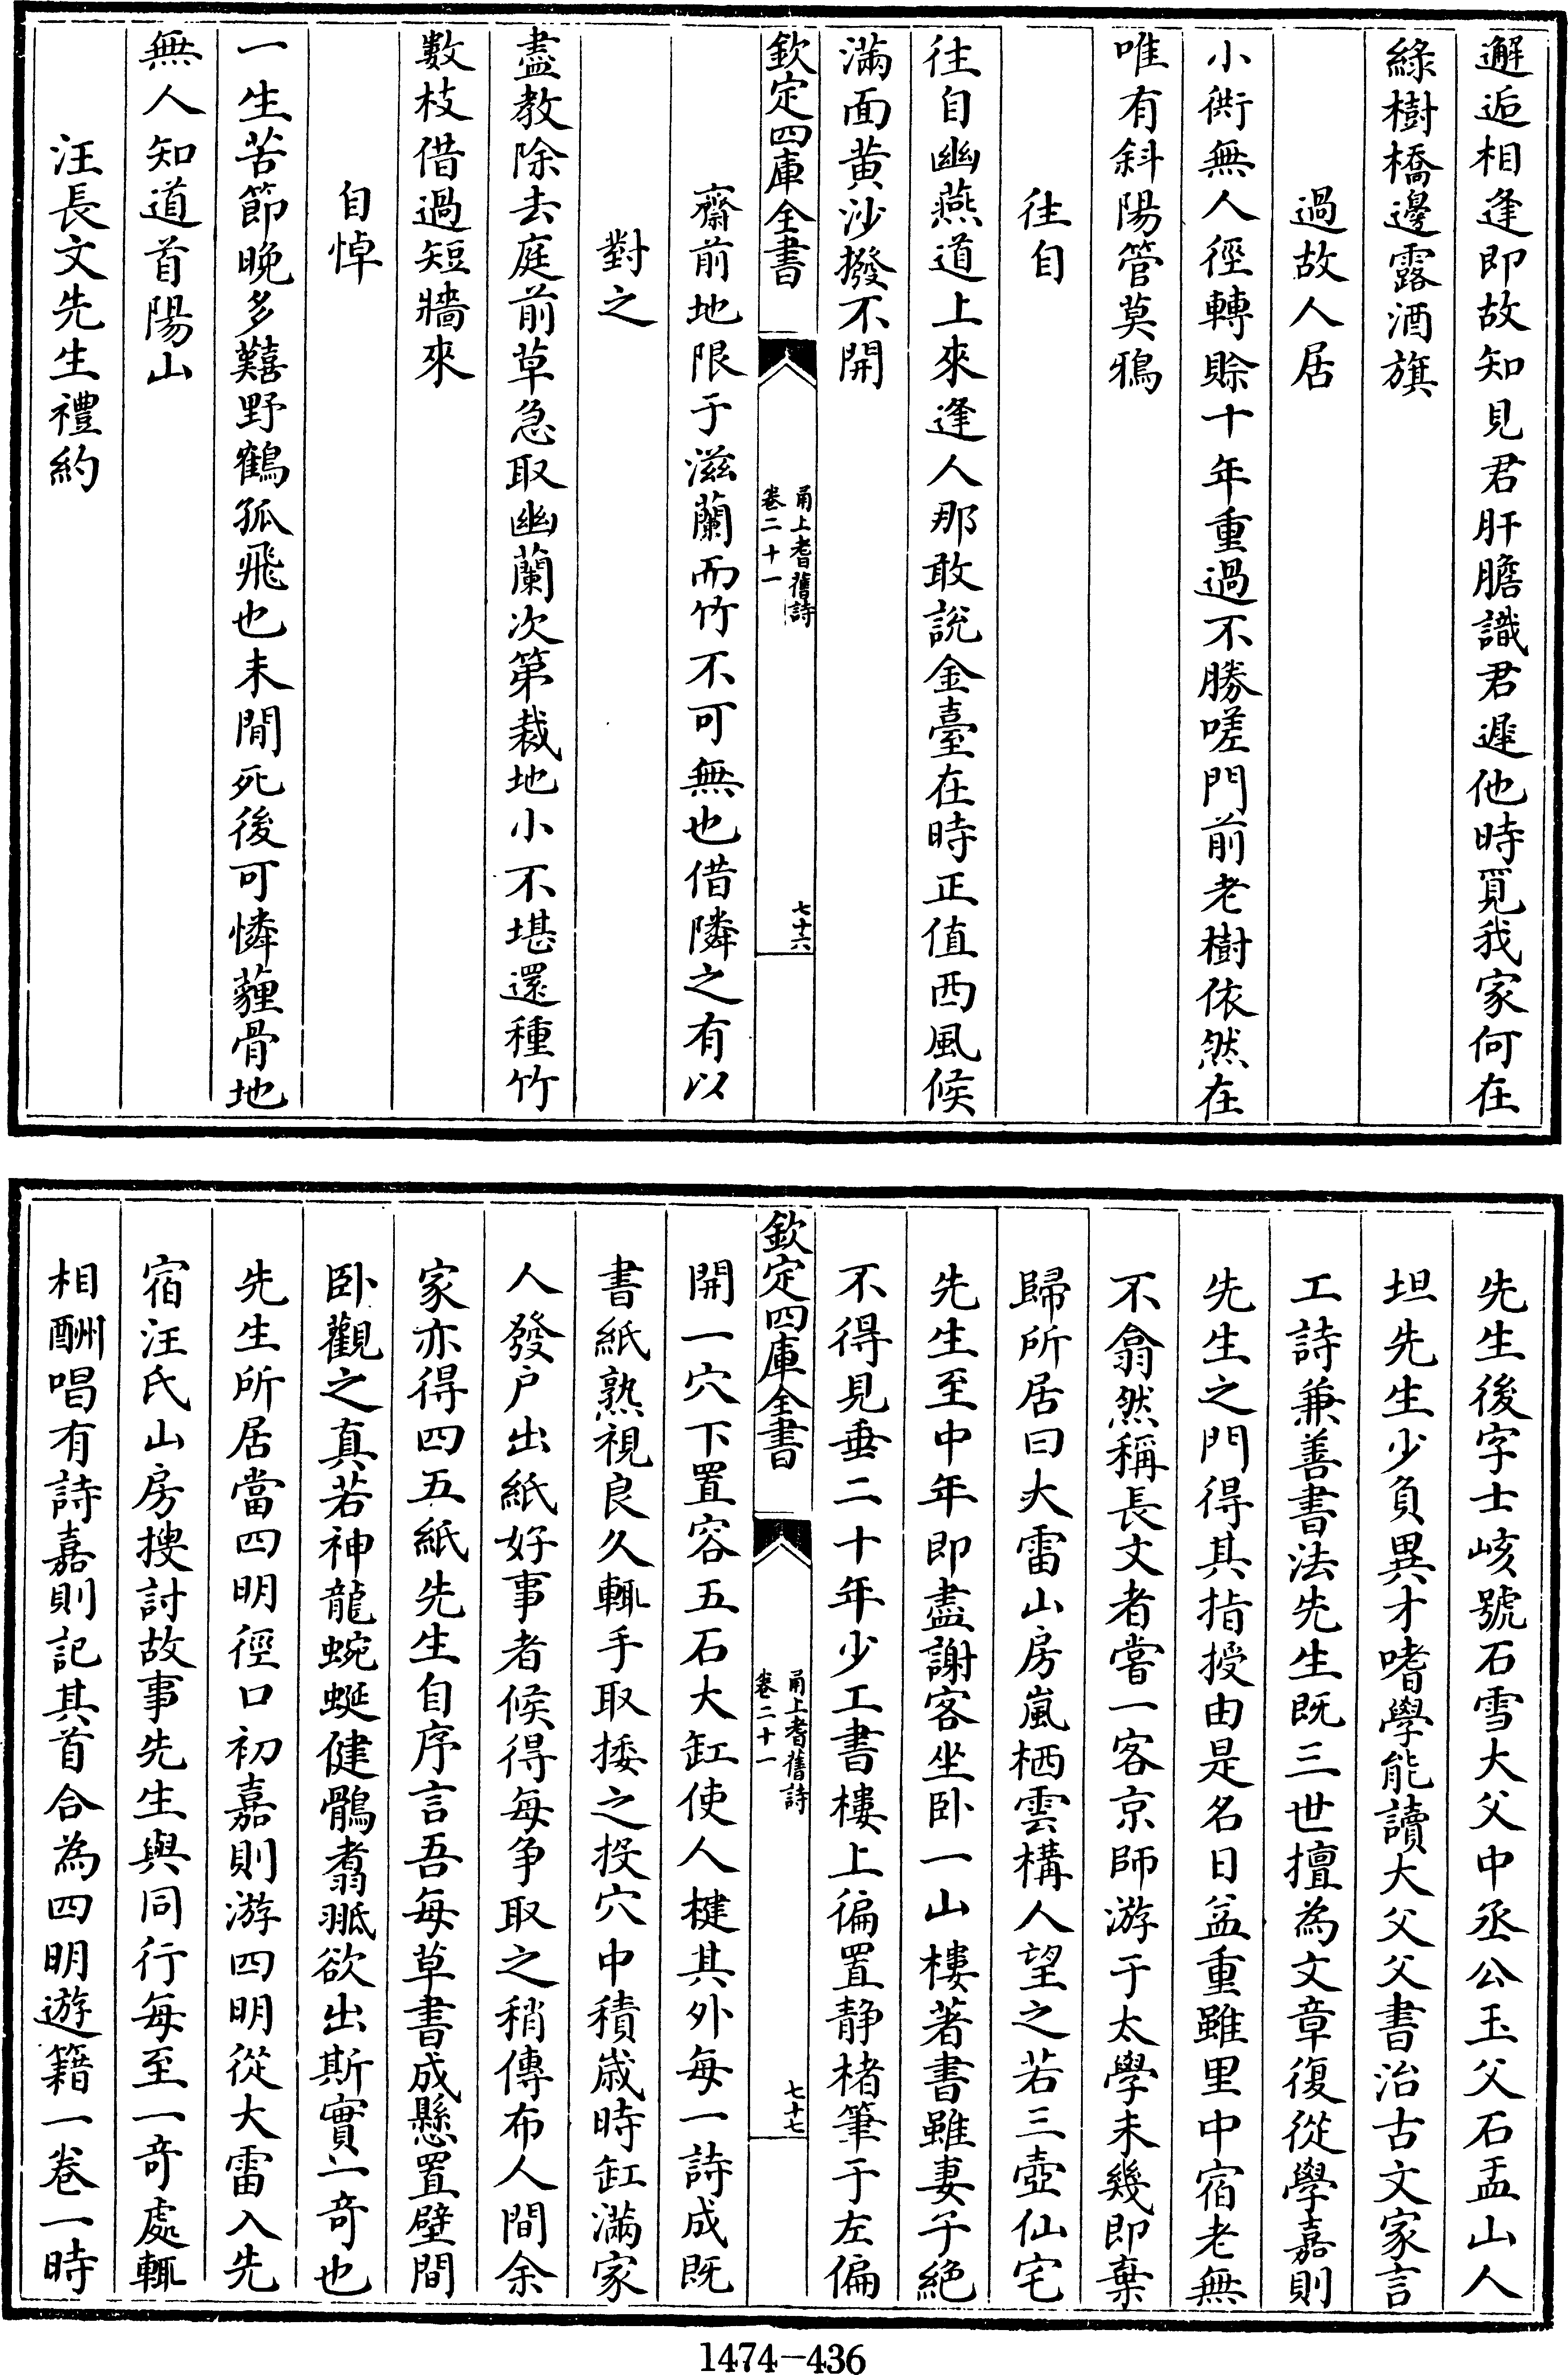 邂逅相逢即故知見君肝膽識君遲他時覓我家何在
綠樹橋邊露酒旗
過故人居
小衖無人徑轉賒十年重過不勝嗟門前老樹依然在
唯有斜陽管莫鴉
往自
往自幽燕道上來逢人那敢說金臺在時正值西風候
滿面黃沙撥不開
欽定四庫全書
甬上耆舊詩
卷二十一
七十六
齋前地限于滋蘭而竹不可無也借隣之有以
對之
盡教除去庭前草急取幽蘭次第栽地小不堪還種竹
數枝借過短牆來
自悼
一生苦節晚多囏野鶴孤飛也未閒死後可憐薶骨地
無人知道首陽山
汪長文先生禮約
先生後字士峐號石雪大父中丞公玉父石盂山人
坦先生少負異才嗜學能讀大父父書治古文家言
工詩兼善書法先生既三世擅為文章復從學嘉則
先生之門得其指授由是名日益重雖里中宿老無
不翕然稱長文者嘗一客京師游于太學未幾即棄
歸所居曰大雷山房嵐栖雲構人望之若三壺仙宅
先生至中年即盡謝客坐卧一山樓著書雖妻子絕
不得見垂二十年少工書樓上徧置静楮筆于左偏
欽定四庫全書
甬上耆舊詩
卷二十一
七十七
開一穴下置容五石大缸使人楗其外每一詩成既
書紙熟視良久輒手取捼之投穴中積歲時缸滿家
人發户出紙好事者候得每争取之稍傳布人間余
家亦得四五紙先生自序言吾每草書成懸置壁間
卧觀之真若神龍蜿蜒健鶻翥翐欲出斯實一奇也
先生所居當四明徑口初嘉則游四明從大雷入先
宿汪氏山房搜討故事先生與同行每至一奇處輒
相酬唱有詩嘉則記其首合為四明遊籍一卷一時
1474－436